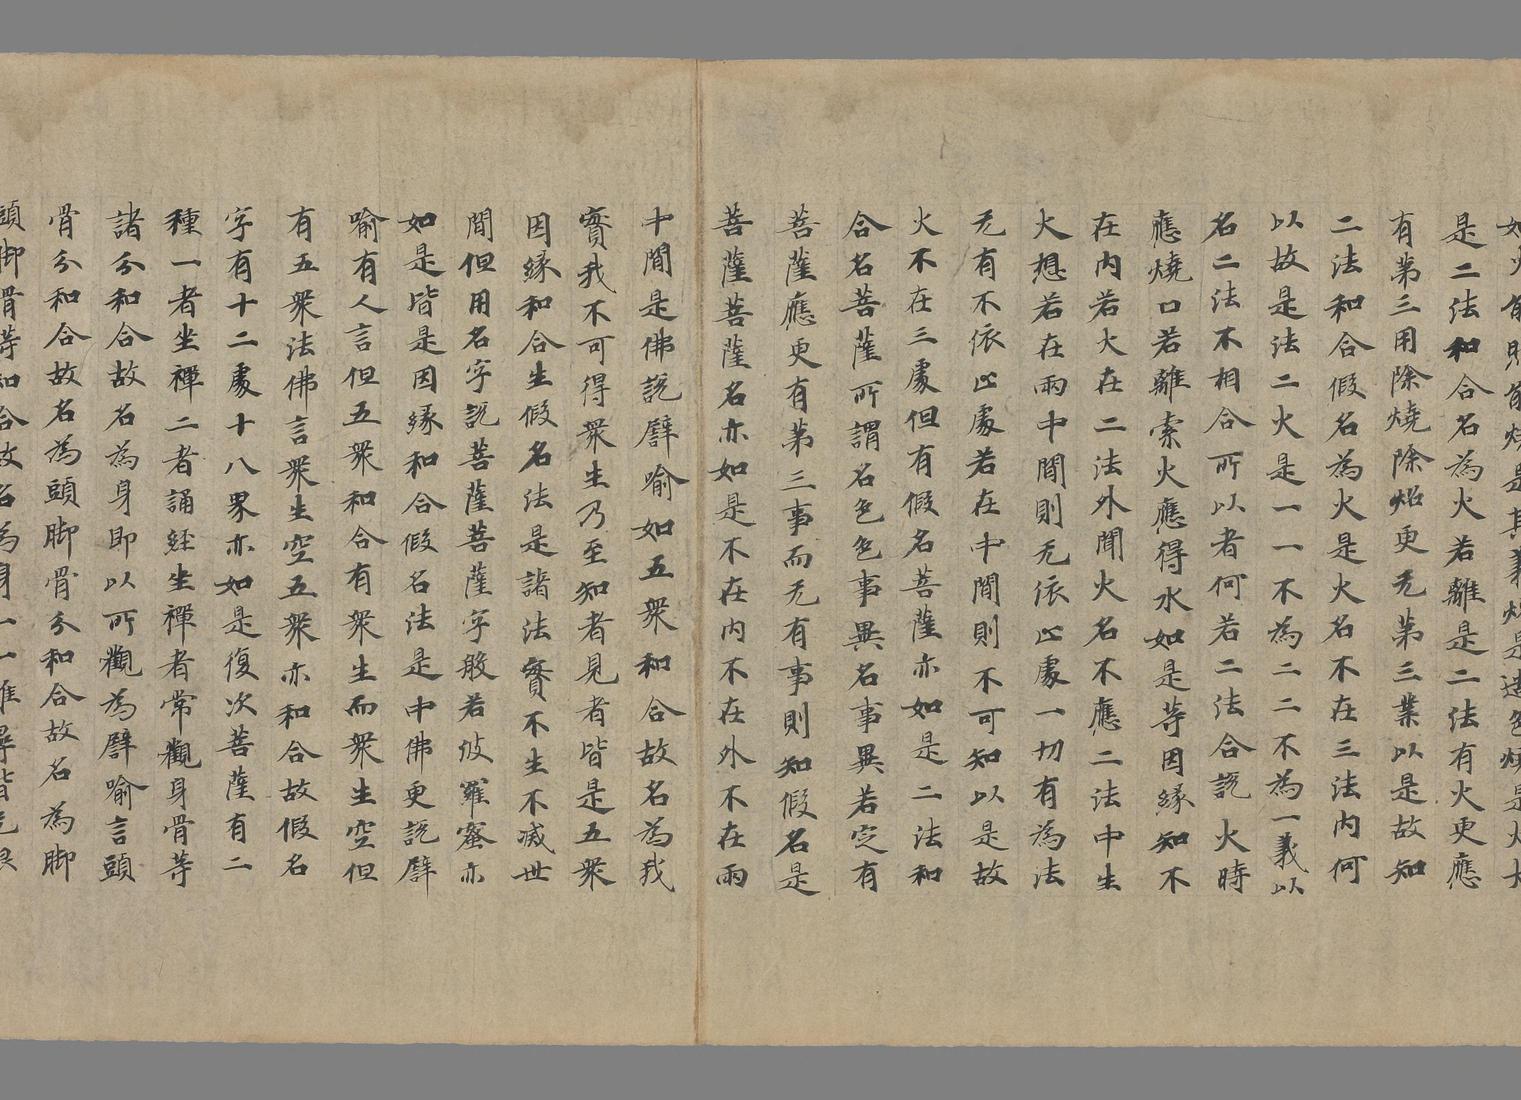 是二法和合名為火若離是二法有火更應
有第三用除燒除炤更无第三業以是故知
二法和合假名為火是火名不在三法內何
以故是法二火是一一不為二二不為一義以
名二法不相合所以者何若二法合說火時
應燒口若離索火應得水如是等因緣知不
在內若火在二法外聞火名不應二法中生
火想若在兩中間則无依止處一切有為法
无有不依止處若在中間則不可知以是故
火不在三處但有假名菩薩亦如是二法和
合名菩薩所謂名色色事異名事異若定有
菩薩應更有第三事而无有事則知假名是
菩薩菩薩名亦如是不在內不在外不在兩
中間是佛說譬喻如五眾和合故名為我
實我不可得眾生乃至知者見者皆是五眾
因緣和合生假名法是諸法實不生不滅世
間但用名字說菩薩菩薩字般若波羅蜜亦
如是皆是因緣和合假名法是中佛更說譬
喻有人言但五眾和合有眾生而眾生空但
有五眾法佛言眾生空五眾亦和合故假名
字有十二處十八界亦如是復次菩薩有二
種一者坐禪二者誦經坐禪者常觀身骨等
諸分和合故名為身即以所觀為譬喻言頭
骨分和合故名為頭腳骨分和合故名為腳
頭腳骨等和合故名為身一一推尋皆无根